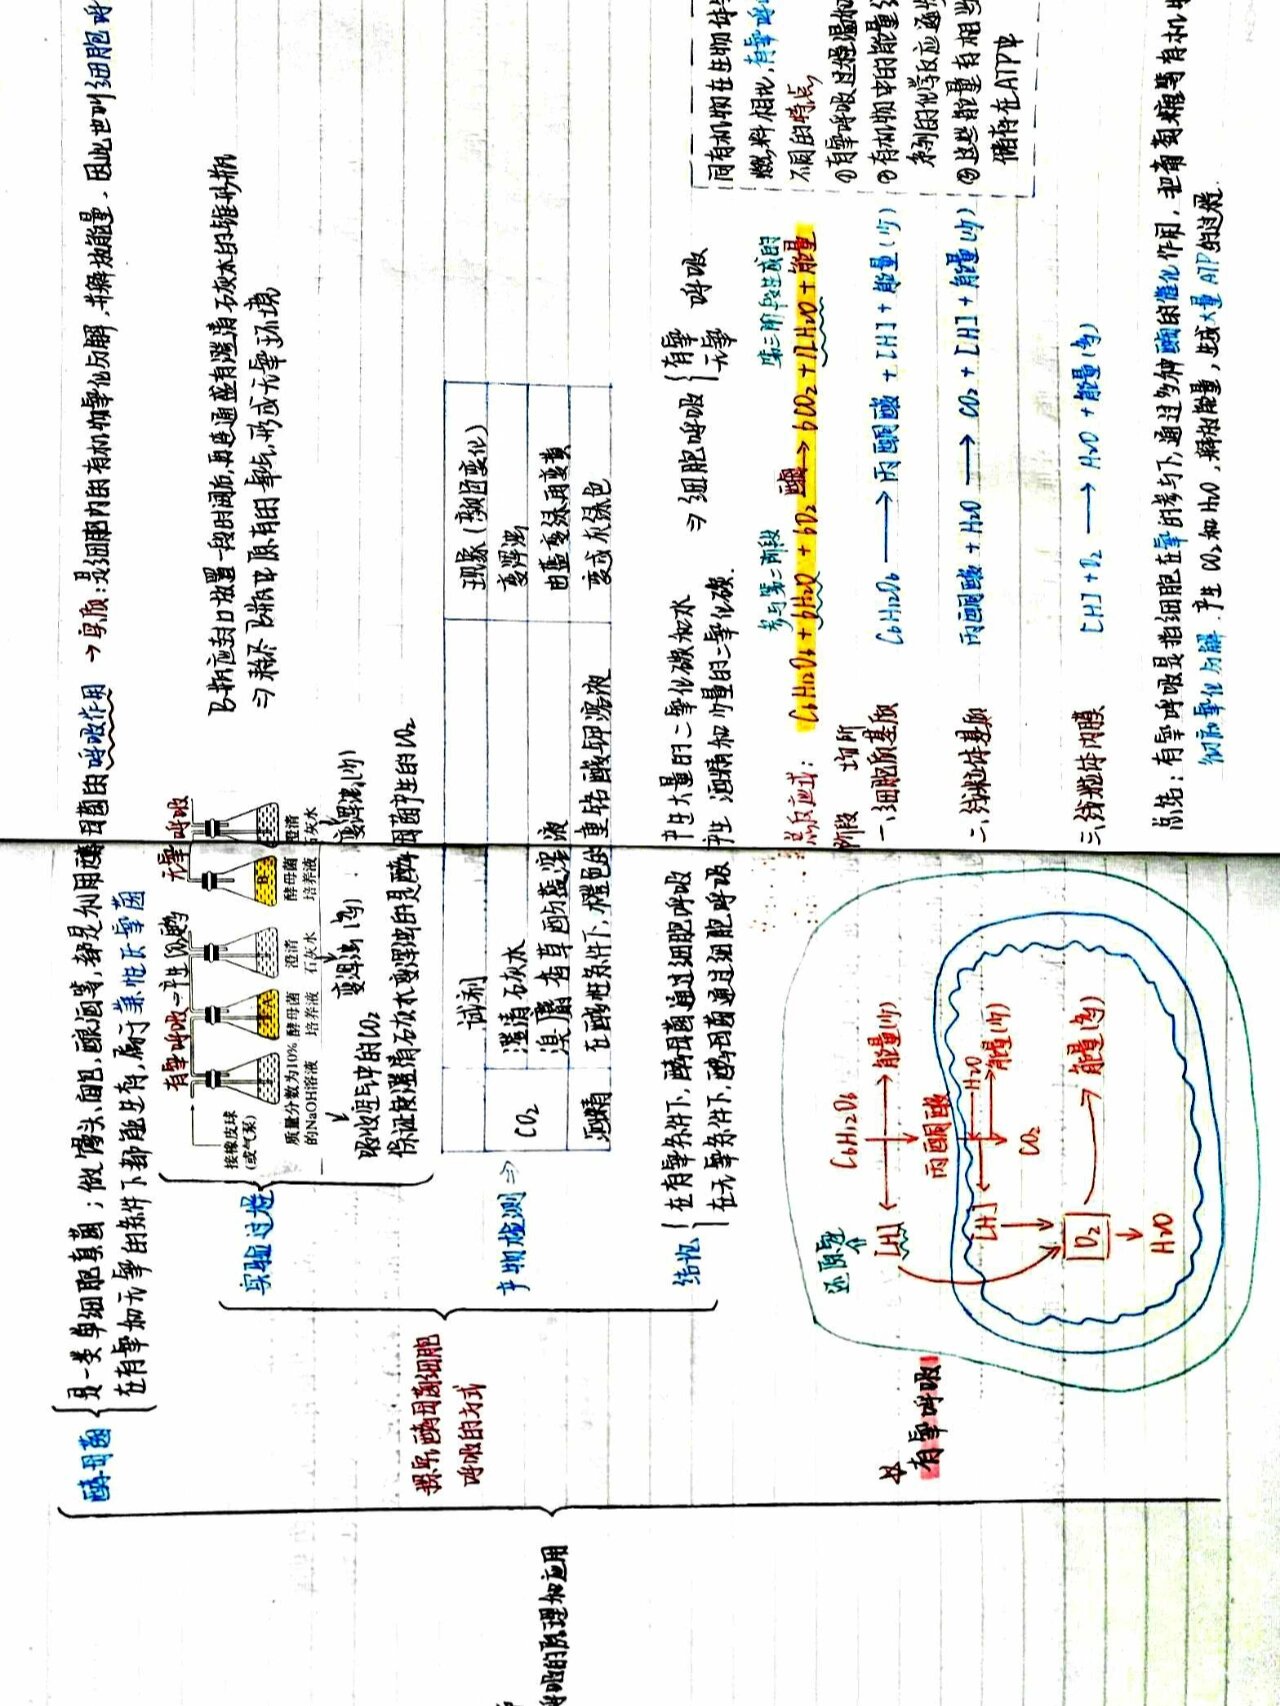 呼吸的原理和应用
酵母菌
是一类单细胞真菌；做馒头、面包、酿酒等，都是利用酵母菌的呼吸作用 → 实质：是细胞内的有机物氧化分解，并释放能量，因此也叫细胞呼
在有氧和无氧的条件下都能生存，属于兼性厌氧菌
探究酵母菌细胞
呼吸的方式
实验过程
有氧呼吸→产生CO₂多
无氧呼吸
接橡皮球
(或气泵)
质量分数为10%
的NaOH溶液
酵母菌
培养液
澄清
石灰水
酵母菌
培养液
澄清
石灰水
B
吸收空气中的CO₂
变浑浊(多)
变浑浊(少)
保证使澄清石灰水变浑浊的是酵母菌产生的CO₂
B瓶应封口放置一段时间后,再连通盛有澄清石灰水的锥形瓶
⇒耗尽B瓶中原有的氧气,形成无氧环境
产物检测⇒
试剂 现象(颜色变化)
CO₂ 澄清石灰水 变浑浊
溴麝香草酚蓝溶液 由蓝变绿再变黄
酒精 在酸性条件下,橙色的重铬酸钾溶液 变成灰绿色
结论
在有氧条件下,酵母菌通过细胞呼吸 产生大量的二氧化碳和水
在无氧条件下,酵母菌通过细胞呼吸 产生酒精和少量的二氧化碳.
⇒细胞呼吸
有氧
无氧
呼吸
有氧呼吸
还原氢
C₆H₁₂O₆
[H]
能量(少)
丙酮酸
H₂O
[H]
能量(少)
CO₂
O₂
能量(多)
H₂O
参与第二阶段
第三阶段生成的
总反应式: C₆H₁₂O₆ + 6H₂O + 6O₂ 酶→ 6CO₂ + 12H₂O + 能量
阶段 场所
一、细胞质基质 C₆H₁₂O₆ → 丙酮酸 + [H] + 能量(少)
二、线粒体基质 丙酮酸 + H₂O → CO₂ + [H] + 能量(少)
三、线粒体内膜 [H] + O₂ → H₂O + 能量(多)
同有机物在生物体
燃料相比,有氧呼
不同的特点,
①有氧呼吸过程温和
②有机物中的能量
系列的化学反应逐
③这些能量有相当
储存在ATP中
总结: 有氧呼吸是指细胞在氧的参与下,通过多种酶的催化作用,把葡萄糖等有机
彻底氧化分解.产生CO₂和H₂O,释放能量,生成大量ATP的过程.